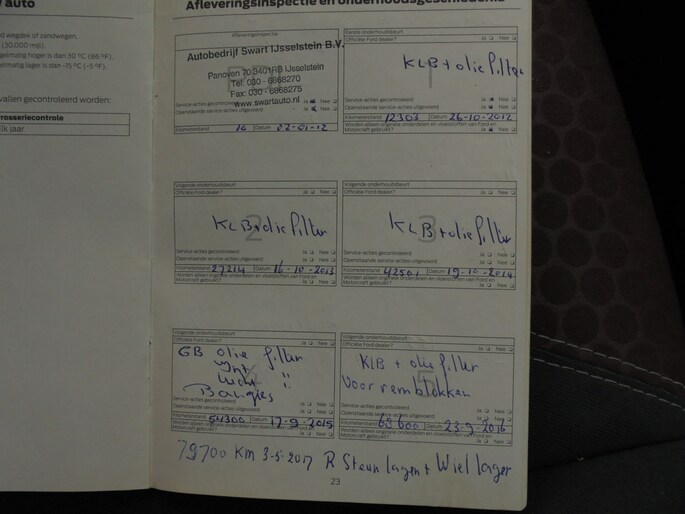 auto
wegdek of zandwegen,
(30.000 mijl).
gelmatig hoger is dan 30 °C (86 °F).
gelmatig lager is dan -15 °C (-5 °F).
vallen gecontroleerd worden:
rosseriecontrole
lk jaar
Afleveringsinspectie en onderhoudsgeschiedenis
Afleveringsinspectie
Autobedrijf Swart IJsselstein B.V.
Panoven 70 3401RB IJsselstein
Tel. 030 - 6868270
Fax: 030 - 6868275
www.swartauto.nl
Service-acties gecontroleerd Ja Nee
Openstaande service-acties uitgevoerd Ja Nee
Kilometerstand 16 Datum 27-01-12
Eerste onderhoudsbeurt
Officiële Ford dealer? Ja Nee
1
KLB + olie filter
Service-acties gecontroleerd Ja Nee
Openstaande service-acties uitgevoerd Ja Nee
Kilometerstand 12303 Datum 26-10-2012
Worden alleen originele onderdelen en vloeistoffen van Ford en
Motorcraft gebruikt? Ja Nee
Volgende onderhoudsbeurt
Officiële Ford dealer? Ja Nee
2
KLB + olie filter
Service-acties gecontroleerd Ja Nee
Openstaande service-acties uitgevoerd Ja Nee
Kilometerstand 27214 Datum 16-10-2013
Worden alleen originele onderdelen en vloeistoffen van Ford en
Motorcraft gebruikt? Ja Nee
Volgende onderhoudsbeurt
Officiële Ford dealer? Ja Nee
3
KLB + olie filter
Service-acties gecontroleerd Ja Nee
Openstaande service-acties uitgevoerd Ja Nee
Kilometerstand 42501 Datum 19-10-2014
Worden alleen originele onderdelen en vloeistoffen van Ford en
Motorcraft gebruikt? Ja Nee
Volgende onderhoudsbeurt
Officiële Ford dealer? Ja Nee
4
GB olie filter
Int "
lucht "
Bougies
Service-acties gecontroleerd Ja Nee
Openstaande service-acties uitgevoerd Ja Nee
Kilometerstand 54300 Datum 17-9-2015
Worden alleen originele onderdelen en vloeistoffen van Ford en
Motorcraft gebruikt? Ja Nee
Volgende onderhoudsbeurt
Officiële Ford dealer? Ja Nee
5
KLB + olie filter
Voor remblokken
Service-acties gecontroleerd Ja Nee
Openstaande service-acties uitgevoerd Ja Nee
Kilometerstand 68600 Datum 23-9-2016
Worden alleen originele onderdelen en vloeistoffen van Ford en
Motorcraft gebruikt? Ja Nee
79700 km 3-5-2017 R Steun lager + Wiel lager
23